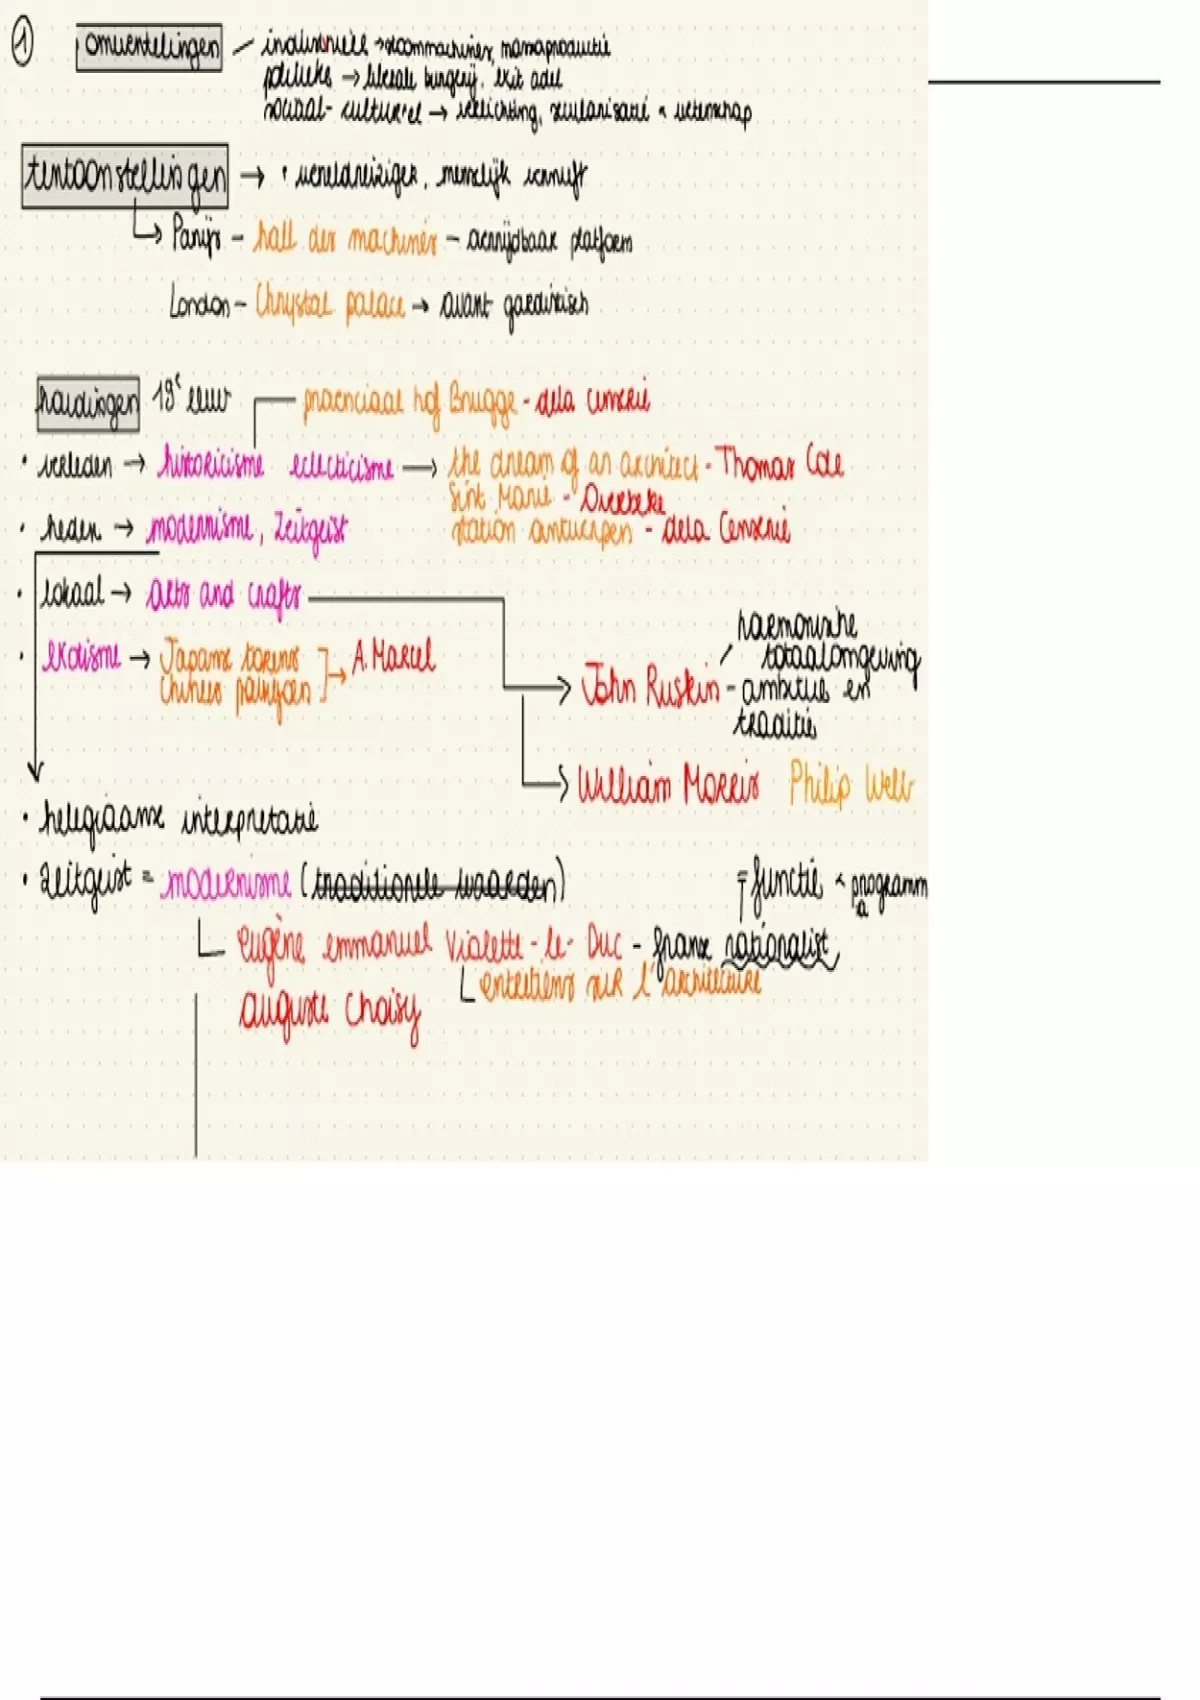 1 omwentelingen – industriële → stoommachines, massaproductie
politieke → liberale burgerij, exit adel
sociaal-cultureel → verlichting, secularisatie & wetenschap
tentoonstellingen → • wereldreiziger, menselijk vernuft
Parijs – hall des machines –  platform
London – Chrystal palace → avant gardistisch
houdingen 19e eeuw provinciaal hof Brugge - dela censerie
• verleden → historicisme eclecticisme → the dream of an architect - Thomas Cole
Sint Marie - Overbeke
station antwerpen - dela Censerie
• heden → modernisme, Zeitgeist
• lokaal → arts and crafts
harmonische
• exotisme → Japanse torens A. Marcel totaalomgeving
Chinees paviljoen John Ruskin - ambitus en
traditie
William Morris Philip Web
• helegiaanse interpretatie
• zeitgeist = modernisme (traditionele waarden) functie & programma
eugène emmanuel Violette-le-Duc - franse rationalist
entretiens sur l'architecture
auguste choisy